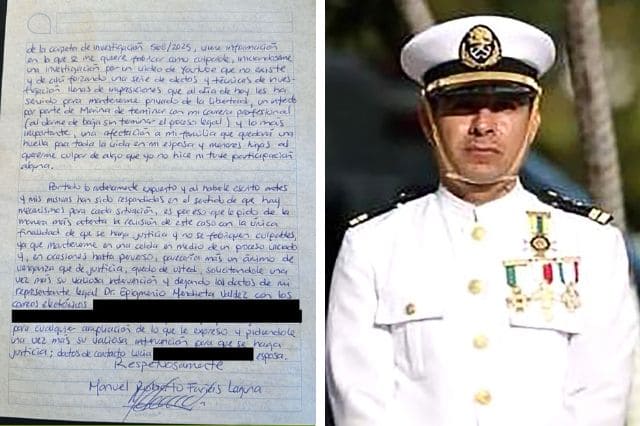 de la carpeta de investigación 568/2025, única información
en la que se me quiere fabricar como culpable, iniciandome
una investigación por un video de Youtube que no existe
y de ahí forzando una serie de efectos y técnicas de inves-
tigación llenas de imprecisiones que al día de hoy les ha
servido para mantenerme privado de la libertad, un intento
por parte de Marina de terminar con mi carrera profesional
(al darme de baja sin terminar el proceso legal) y lo más
importante, una afectación a mi familia que quedará una
huella para toda la vida en mi esposa y menores hijas al
quererme culpar de algo que yo no hice ni tuve participación
alguna.
Por todo lo anteriormente expuesto y al haberle escrito antes
y mis misivas han sido respondidas en el sentido de que hay
mecanismos para cada situación, es por eso que le pido de la
manera más atenta la revisión de este caso con la única
finalidad de que se haga justicia y no se fabriquen culpables,
ya que mantenerme en una celda en medio de un proceso viciado
y, en ocasiones hasta perverso, pareciera más un ánimo de
venganza que de justicia, quedo de usted, solicitándole una
vez más su valiosa intervención y dejando los datos de mi
representante legal Dr. Epigmenio Mendieta Valdez con los
correos electrónicos
para cualquier ampliación de lo que le expreso y pidiendole
una vez más su valiosa intervención para que se haga
justicia; datos de contacto Lucia esposa.
Respetuosamente
Manuel Roberto Farías Laguna